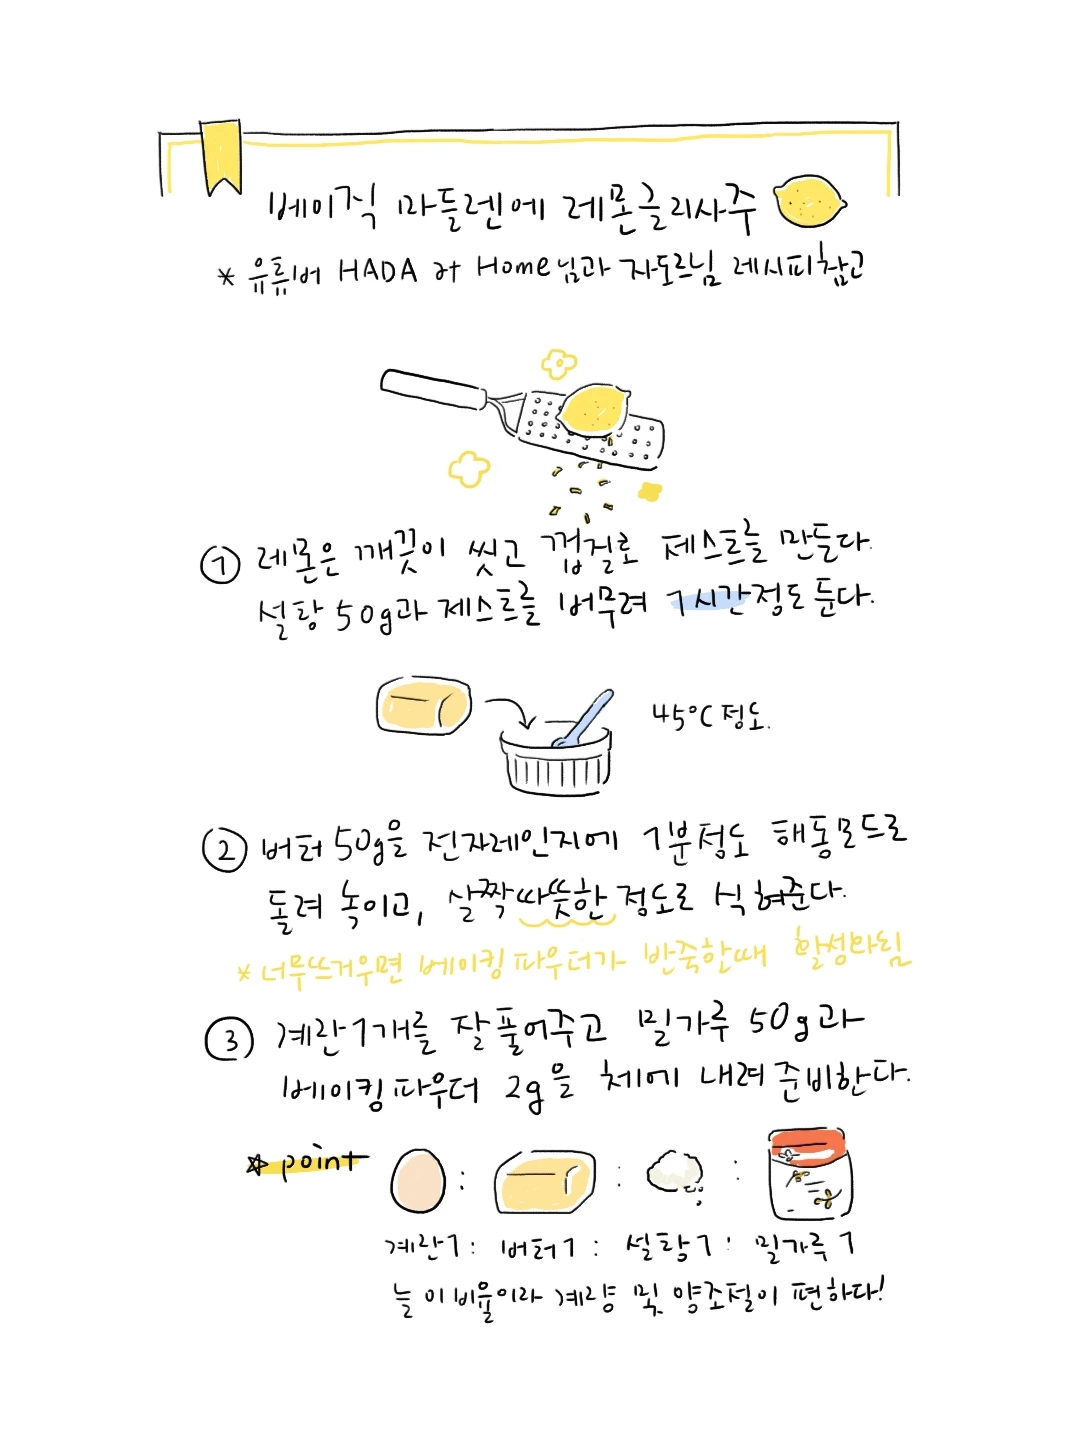 베이직 마들렌에 레몬글라사주
* 유튜버 HADA at Home님과 자도르님 레시피참고
① 레몬은 깨끗이 씻고 껍질로 제스트를 만들다.
설탕 50g과 제스트를 버무려 1시간정도 둔다.
45°C 정도.
② 버터 50g을 전자레인지에 1분정도 해동모드로
돌려 녹이고, 살짝 따뜻한 정도로 식혀준다.
* 너무뜨거우면 베이킹파우더가 반죽할때 활성화됨
③ 계란1개를 잘풀어주고 밀가루 50g과
베이킹파우더 2g을 체에 내려 준비한다.
☆ point
: : :
계란1 : 버터1 : 설탕1 : 밀가루1
늘 이비율이라 계량 및 양조절이 편하다!